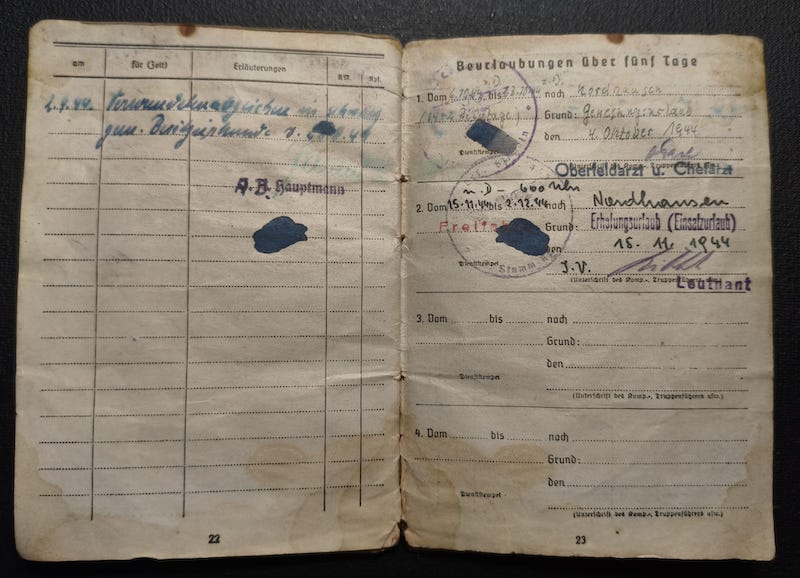 am für (Zeit) Erläuterungen Kst. Kpf.
2.9.44. Verwundetenabzeichen in schwarz
gem. Besitzurkunde v.
Hauptmann
22
Beurlaubungen über fünf Tage
n.D. n.D.
1. Vom 6.10.44 bis 23.10.44 nach Nordhausen
Grund: Genesungsurlaub
den 4. Oktober 1944
Dienststempel
Oberfeldarzt u. Chefarzt
n. D – 600 Uhr
2. Vom 15.11.44 bis 2.12.44 nach Nordhausen
Grund: Erholungsurlaub (Einsatzurlaub)
den 15. 11. 1944
Dienststempel J.V.
(Unterschrift des Komp.-, Truppenführers usw.)
Leutnant
3. Vom bis nach
Grund:
den
Dienststempel
(Unterschrift des Komp.-, Truppenführers usw.)
4. Vom bis nach
Grund:
den
Dienststempel
(Unterschrift des Komp.-, Truppenführers usw.)
23